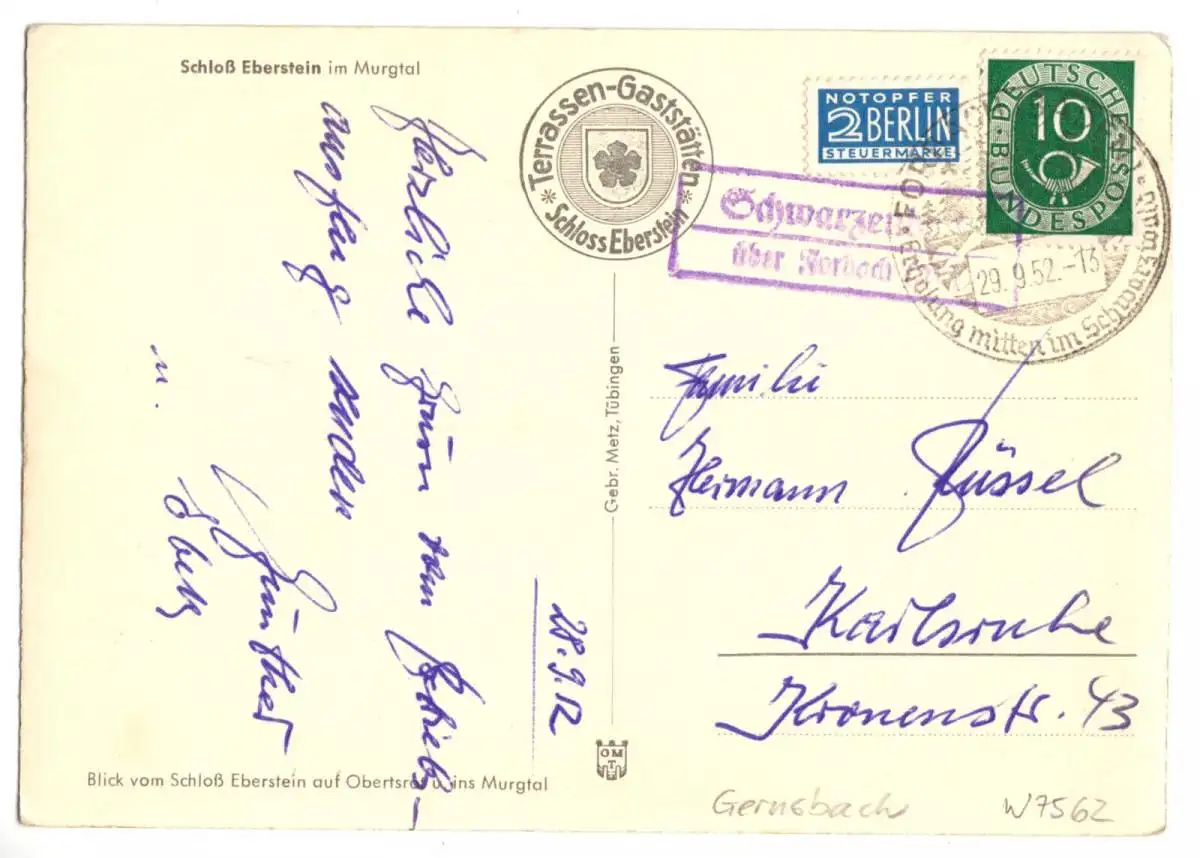 Schloß Eberstein im Murgtal
Herzliche Grüße vom Betriebs-
ausflug senden
Günther
u.
28.9.52
* Terrassen-Gaststätten *
Schloss Eberstein
NOTOPFER
2 BERLIN
STEUERMARKE
DEUTSCHE
BUNDESPOST
10
Schwarzen
über Forbach
29.9.52.-13
Erholung mitten im Schwarzwald
Gebr. Metz, Tübingen
Familie
Hermann Füssel
Karlsruhe
Kronenstr. 43
OMT
Blick vom Schloß Eberstein auf Obertsrot u. ins Murgtal
Gernsbach
W7562